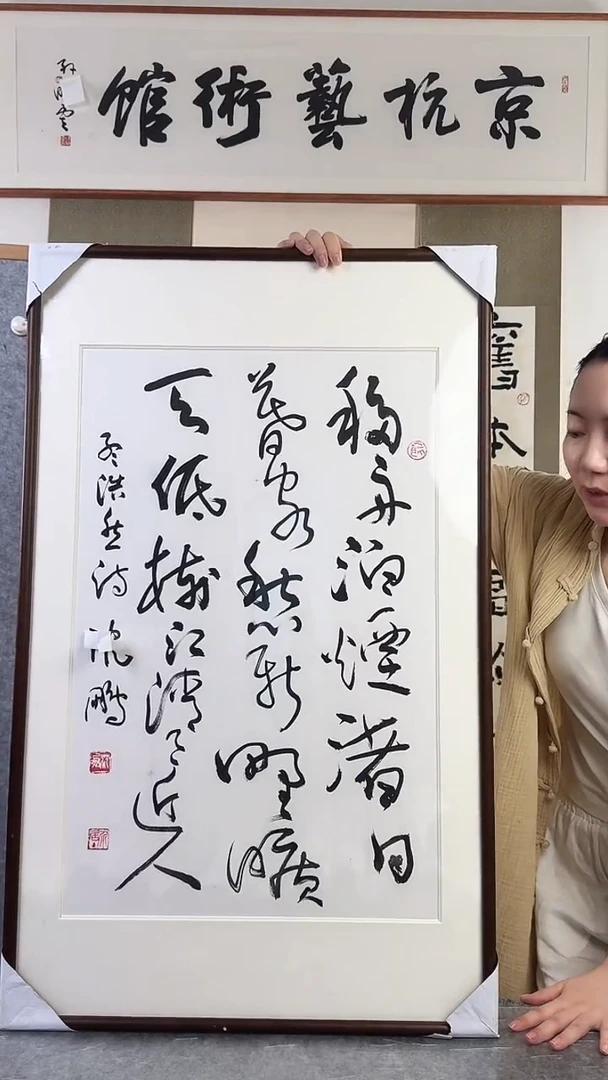 京杭藝術館
移舟泊煙渚日
暮客愁新野曠
天低樹江清月近人
孟浩然詩 沈鵬
舊本